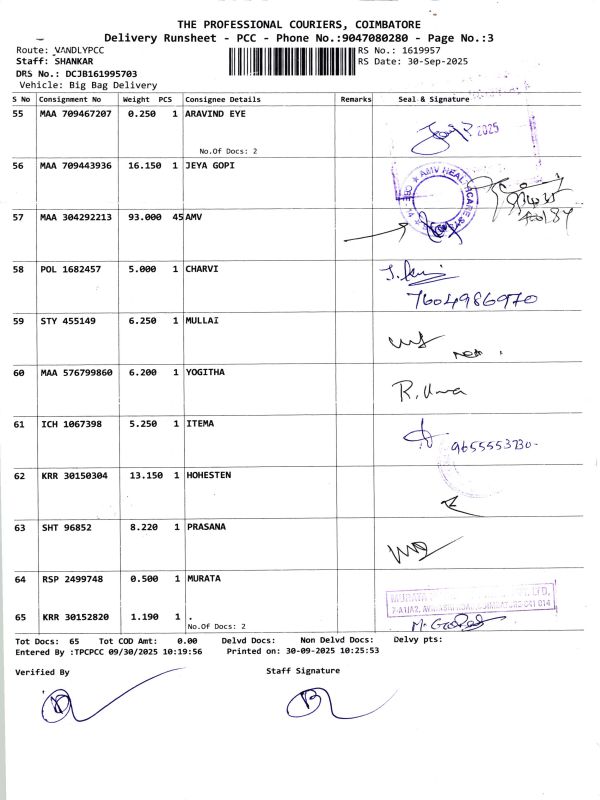 THE PROFESSIONAL COURIERS, COIMBATORE
Delivery Runsheet - PCC - Phone No.:9047080280 - Page No.:3
Route: VANDLYPCC
RS No.: 1619957
Staff: SHANKAR
RS Date: 30-Sep-2025
DRS No.: DCJB161995703
Vehicle: Big Bag Delivery
S No Consignment No Weight PCS Consignee Details Remarks Seal & Signature
55 MAA 709467207 0.250 1 ARAVIND EYE
2025
No.Of Docs: 2
56 MAA 709443936 16.150 1 JEYA GOPI
AMV HEALTHCARE
57 MAA 304292213 93.000 45 AMV
58 POL 1682457 5.000 1 CHARVI
7604986970
59 STY 455149 6.250 1 MULLAI
60 MAA 576799860 6.200 1 YOGITHA
R. Uma
61 ICH 1067398 5.250 1 ITEMA
9655553730-
62 KRR 30150304 13.150 1 HOHESTEN
63 SHT 96852 8.220 1 PRASANA
64 RSP 2499748 0.500 1 MURATA
65 KRR 30152820 1.190 1 .
No.Of Docs: 2
Tot Docs: 65 Tot COD Amt: 0.00 Delvd Docs: Non Delvd Docs: Delvy pts:
Entered By :TPCPCC 09/30/2025 10:19:56 Printed on: 30-09-2025 10:25:53
Verified By
Staff Signature